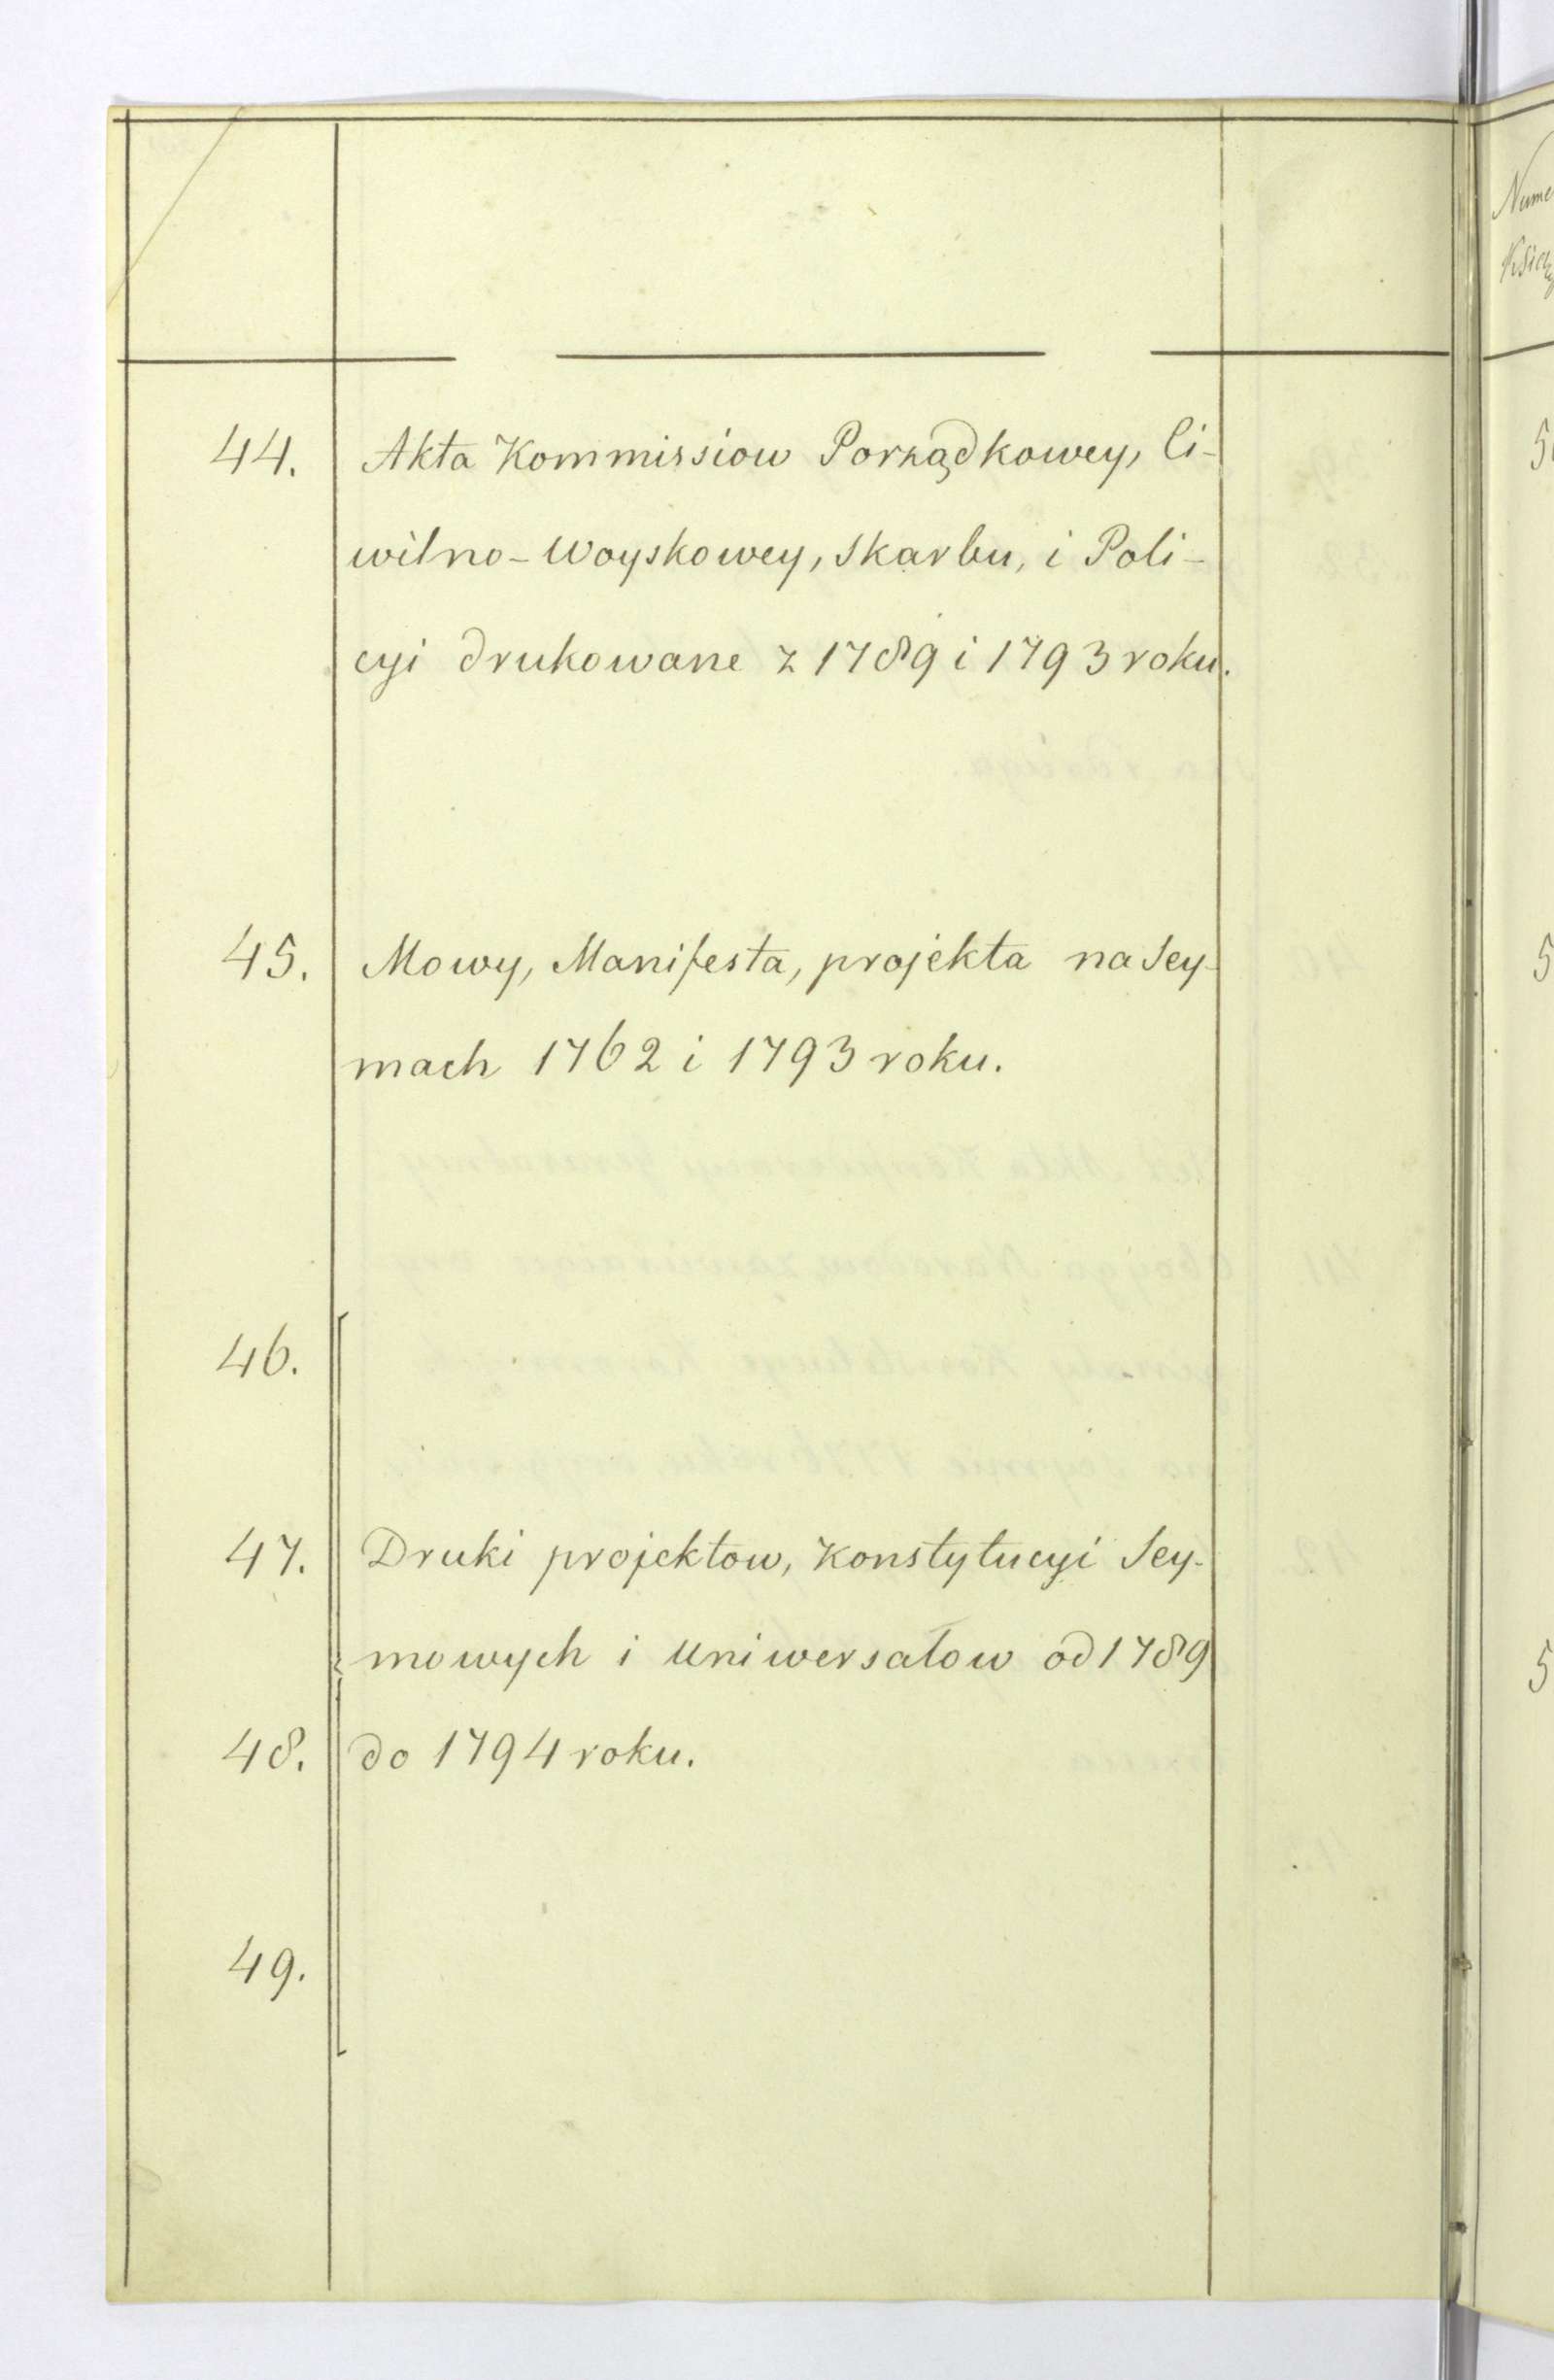 44. Akta Kommissiow Porządkowey, Ci-
wilno-Woyskowey, Skarbu, i Poli-
cyi drukowane z 1789 i 1793 roku.
45. Mowy, Manifesta, projekta na Sey-
mach 1762 i 1793 roku.
46.
47. Druki projektow, Konstytucyi Sey-
mowych i Uniwersałow od 1789
48. do 1794 roku.
49.